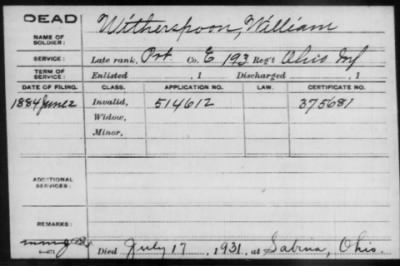 DEAD
NAME OF SOLDIER: Witherspoon, William
SERVICE: Late rank, Pvt Co. E 193 Reg't Ohio Inf
TERM OF SERVICE: Enlisted , 1 Discharged , 1
DATE OF FILING. CLASS. APPLICATION NO. LAW. CERTIFICATE NO.
1884 June 2 Invalid, 514612 375681
Widow,
Minor,
ADDITIONAL SERVICES:
REMARKS:
Died July 17, 1931, at Sabina, Ohio.